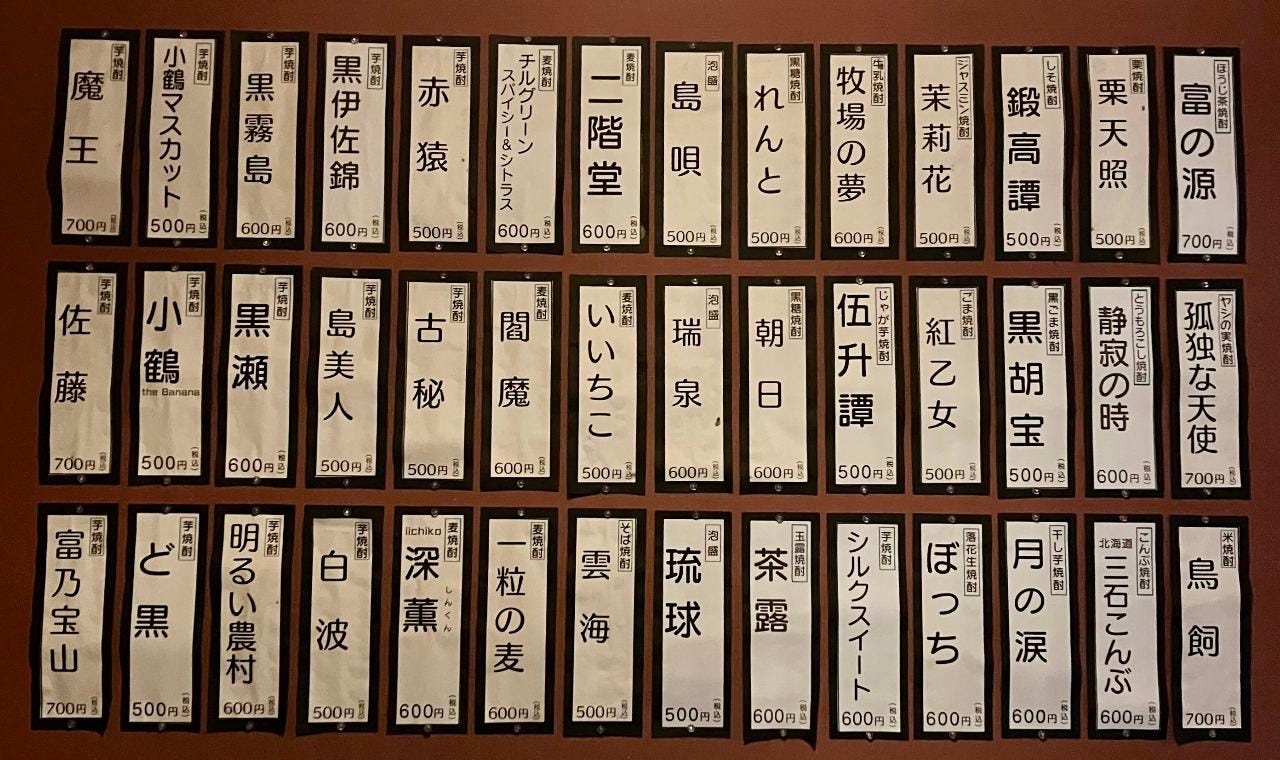 芋焼酎
魔王
700円(税込)
芋焼酎
小鶴マスカット
500円(税込)
芋焼酎
黒霧島
600円(税込)
芋焼酎
黒伊佐錦
600円(税込)
芋焼酎
赤猿
500円(税込)
麦焼酎
チルグリーン
スパイシー&シトラス
600円(税込)
麦焼酎
二階堂
600円(税込)
泡盛
島唄
500円(税込)
黒糖焼酎
れんと
500円(税込)
牛乳焼酎
牧場の夢
600円(税込)
ジャスミン焼酎
茉莉花
500円(税込)
しそ焼酎
鍛高譚
500円(税込)
栗焼酎
栗天照
500円(税込)
ほうじ茶焼酎
富の源
700円(税込)
芋焼酎
佐藤
700円(税込)
芋焼酎
小鶴
the Banana
500円(税込)
芋焼酎
黒瀬
600円(税込)
芋焼酎
島美人
500円(税込)
芋焼酎
古秘
500円(税込)
麦焼酎
閻魔
600円(税込)
麦焼酎
いいちこ
500円(税込)
泡盛
瑞泉
600円(税込)
黒糖焼酎
朝日
600円(税込)
じゃが芋焼酎
伍升譚
500円(税込)
ごま焼酎
紅乙女
500円(税込)
黒ごま焼酎
黒胡宝
500円(税込)
とうもろこし焼酎
静寂の時
600円(税込)
ヤシの実焼酎
孤独な天使
700円(税込)
芋焼酎
富乃宝山
700円(税込)
芋焼酎
ど黒
500円(税込)
芋焼酎
明るい農村
600円(税込)
芋焼酎
白波
500円(税込)
麦焼酎
iichiko
深薫
しんくん
600円(税込)
麦焼酎
一粒の麦
600円(税込)
そば焼酎
雲海
500円(税込)
泡盛
琉球
500円(税込)
玉露焼酎
茶露
600円(税込)
芋焼酎
シルクスイート
600円(税込)
落花生焼酎
ぼっち
600円(税込)
干し芋焼酎
月の涙
600円(税込)
こんぶ焼酎
北海道
三石こんぶ
600円(税込)
米焼酎
鳥飼
700円(税込)